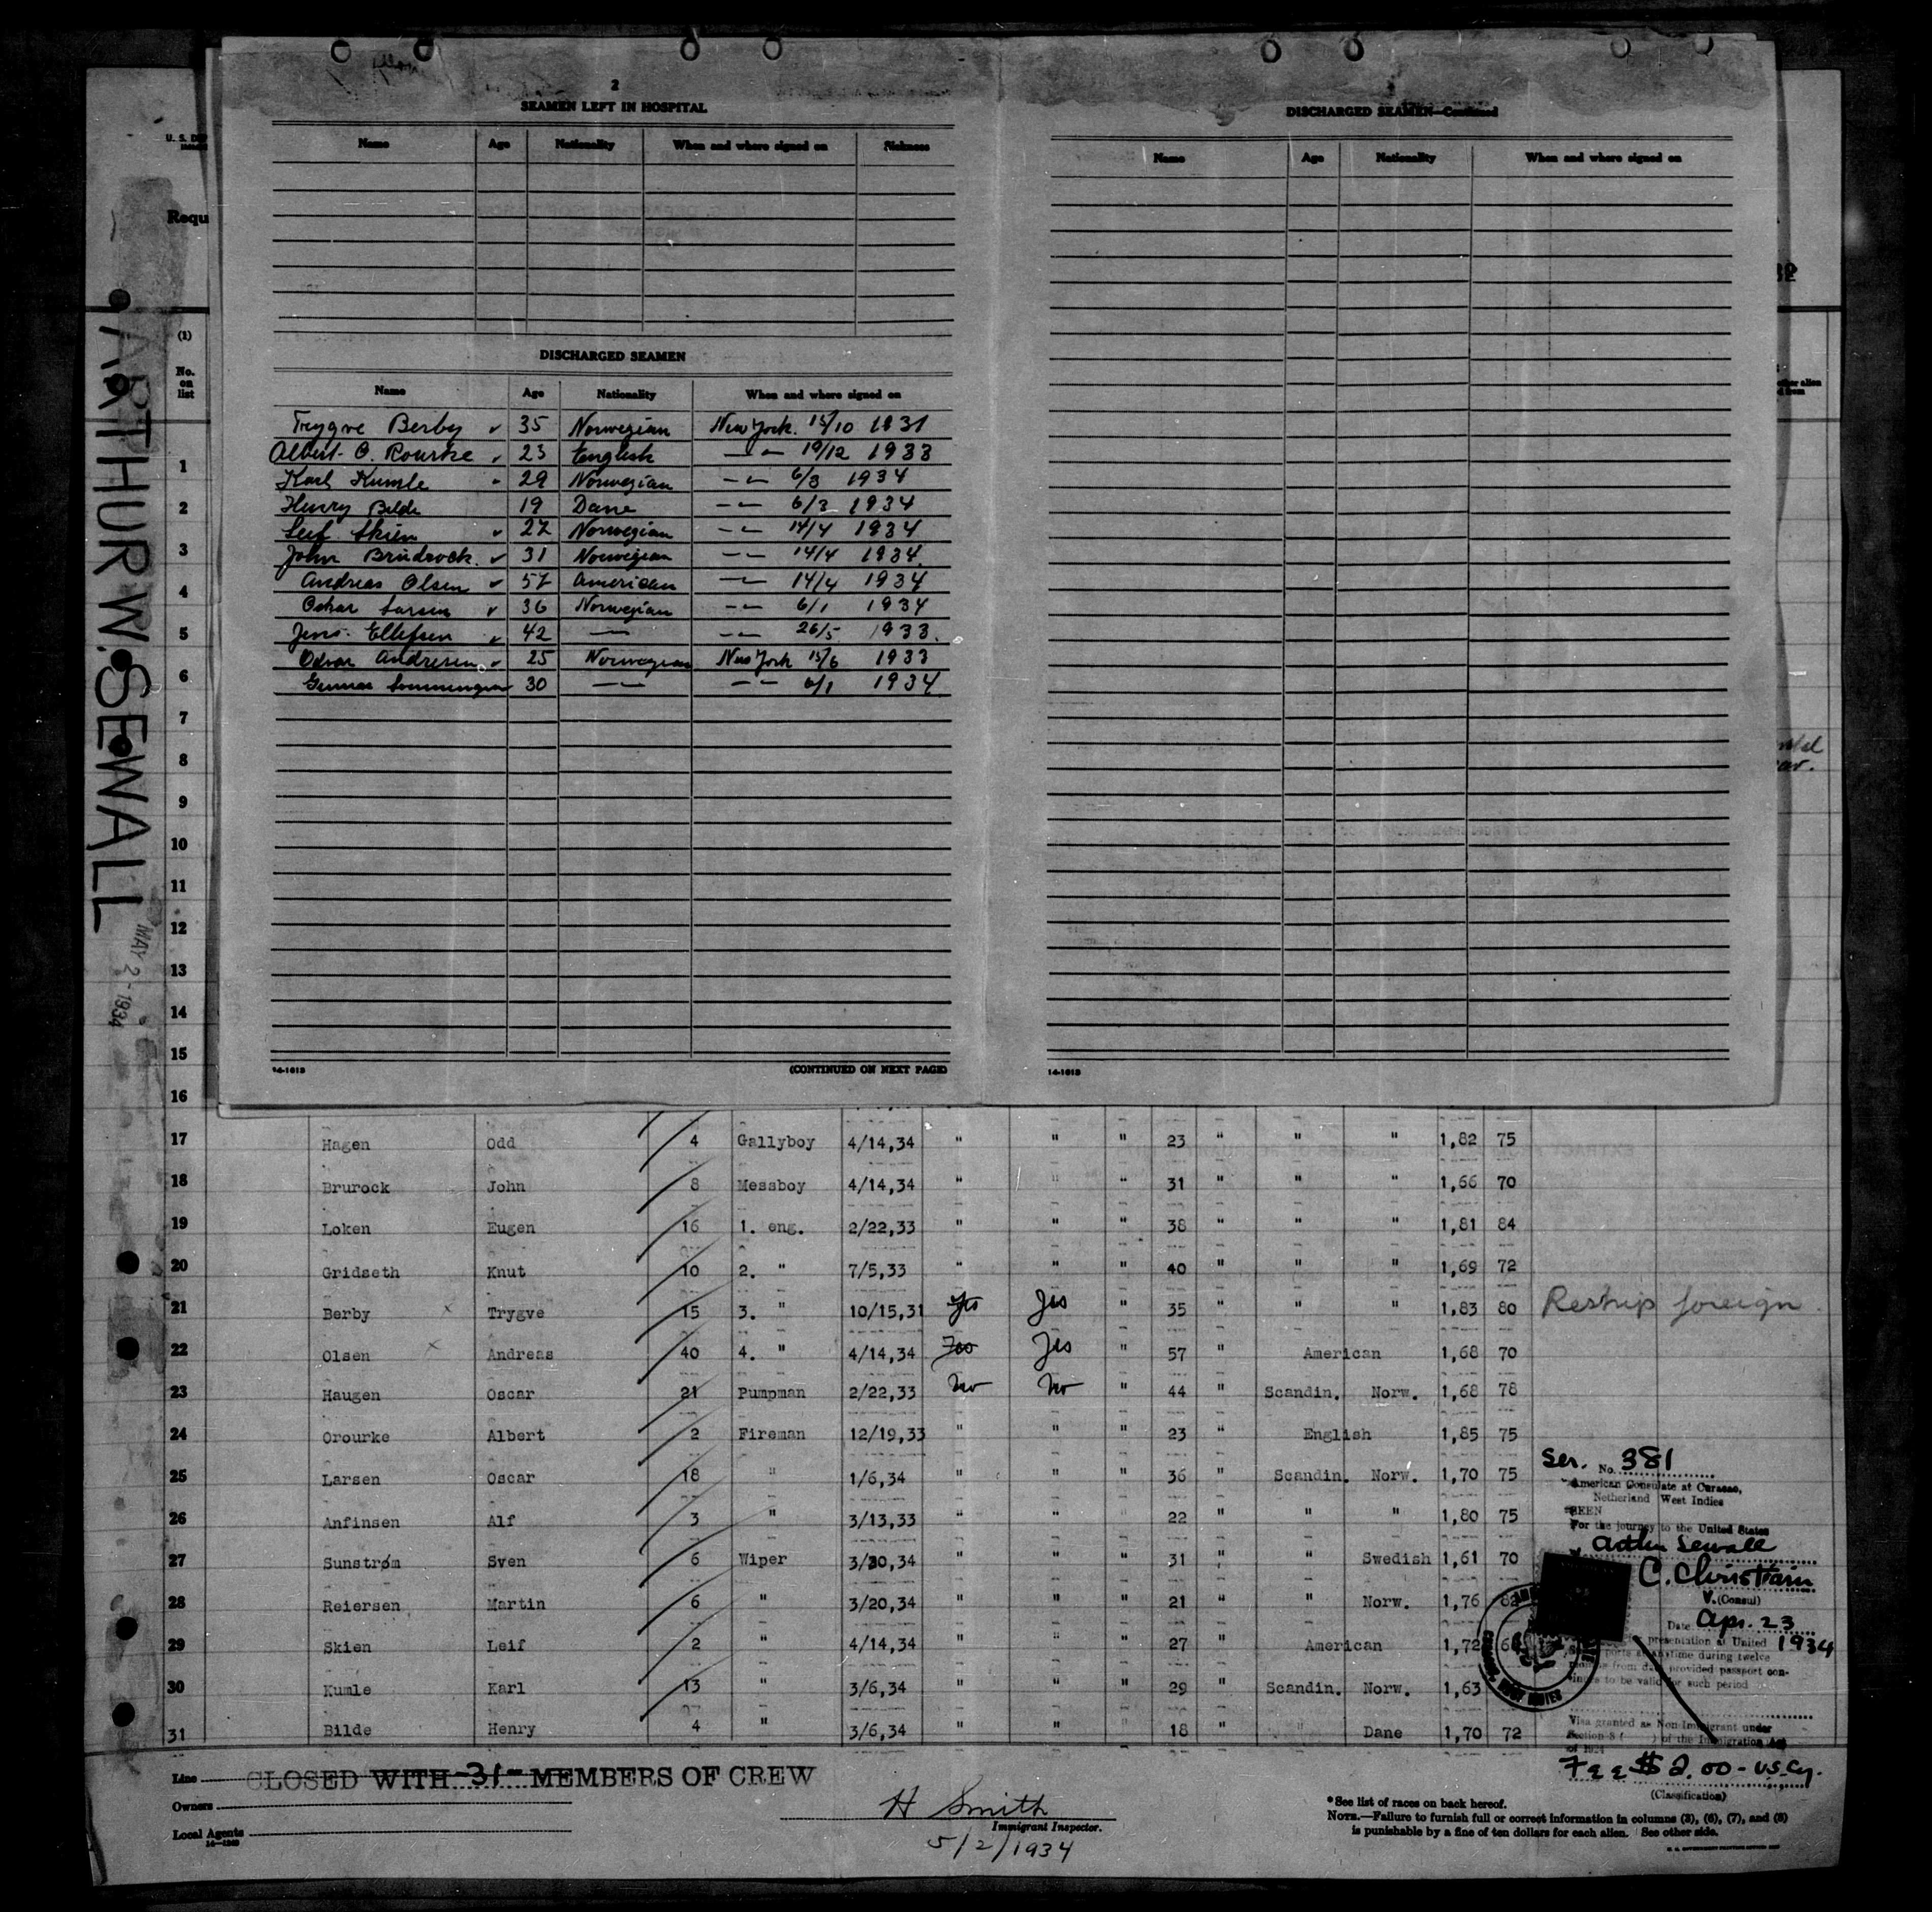 2
SEAMEN LEFT IN HOSPITAL
Name Age Nationality When and where signed on Sickness
DISCHARGED SEAMEN
Name Age Nationality When and where signed on
Trygve Berby 35 Norwegian New York. 15/10 1931
Albert O. Rourke 23 English -"- 19/12 1933
Karl Kumle 29 Norwegian -"- 6/3 1934
Henry Bilde 19 Dane -"- 6/3 1934
Leif Skien 27 Norwegian -"- 14/4 1934
John Brudrock. 31 Norwegian -"- 14/4 1934.
Andreas Olsen 57 American -"- 14/4 1934
Oskar Larsen 36 Norwegian -"- 6/1 1934
Jens Ellefsen 42 -"- -"- 26/5 1933.
Odvar Andresen 25 Norwegian New York 15/6 1933
Gunnar 30 -"- -"- 6/1 1934
14-1613 (CONTINUED ON NEXT PAGE)
DISCHARGED SEAMEN—Continued
Name Age Nationality When and where signed on
14-1613
U. S. DEP
Requ
ARTHUR W. SEWALL
MAY 2 - 1934
(1)
No. on list
1
2
3
4
5
6
7
8
9
10
11
12
13
14
15
16
17 Hagen Odd 4 Gallyboy 4/14,34 " " " 23 " " " 1,82 75
18 Brurock John 8 Messboy 4/14,34 " " " 31 " " " 1,66 70
19 Loken Eugen 16 1. eng. 2/22,33 " " " 38 " " " 1,81 84
20 Gridseth Knut 10 2. " 7/5,33 " " " 40 " " " 1,69 72
21 Berby x Trygve 15 3. " 10/15,31 Yes Yes " 35 " " " 1,83 80 Reship foreign
22 Olsen x Andreas 40 4. " 4/14,34 Yes Yes " 57 " American 1,68 70
23 Haugen Oscar 21 Pumpman 2/22,33 No No " 44 " Scandin. Norw. 1,68 78
24 Orourke Albert 2 Fireman 12/19,33 " " " 23 " English 1,85 75
25 Larsen Oscar 18 " 1/6,34 " " " 36 " Scandin. Norw. 1,70 75
26 Anfinsen Alf 3 " 3/13,33 " " " 22 " " " 1,80 75
27 Sunstrøm Sven 6 Wiper 3/20,34 " " " 31 " " Swedish 1,61 70
28 Reiersen Martin 6 " 3/20,34 " " " 21 " " Norw. 1,76 82
29 Skien Leif 2 " 4/14,34 " " " 27 " American 1,72
30 Kumle Karl 13 " 3/6,34 " " " 29 " Scandin. Norw. 1,63
31 Bilde Henry 4 " 3/6,34 " " " 18 " " Dane 1,70 72
Ser. No. 381
American Consulate at Curacao,
Netherland West Indies
SEEN
For the journey to the United States
Arthur Sewall
C. Christiani
V. (Consul)
Date Apr. 23 1934
presentation at United
ports at anytime during twelve
months from date provided passport con-
tinues to be valid for such period
Visa granted as Non-Immigrant under
Section 3 ( ) of the Immigration Act
of 1924
Fee $2.00 - US.Cy.
(Classification)
Line CLOSED WITH -31- MEMBERS OF CREW
Owners
Local Agents
H Smith
Immigrant Inspector.
5/2/1934
* See list of races on back hereof.
NOTE.—Failure to furnish full or correct information in columns (3), (6), (7), and (8)
is punishable by a fine of ten dollars for each alien. See other side.
U. S. GOVERNMENT PRINTING OFFICE